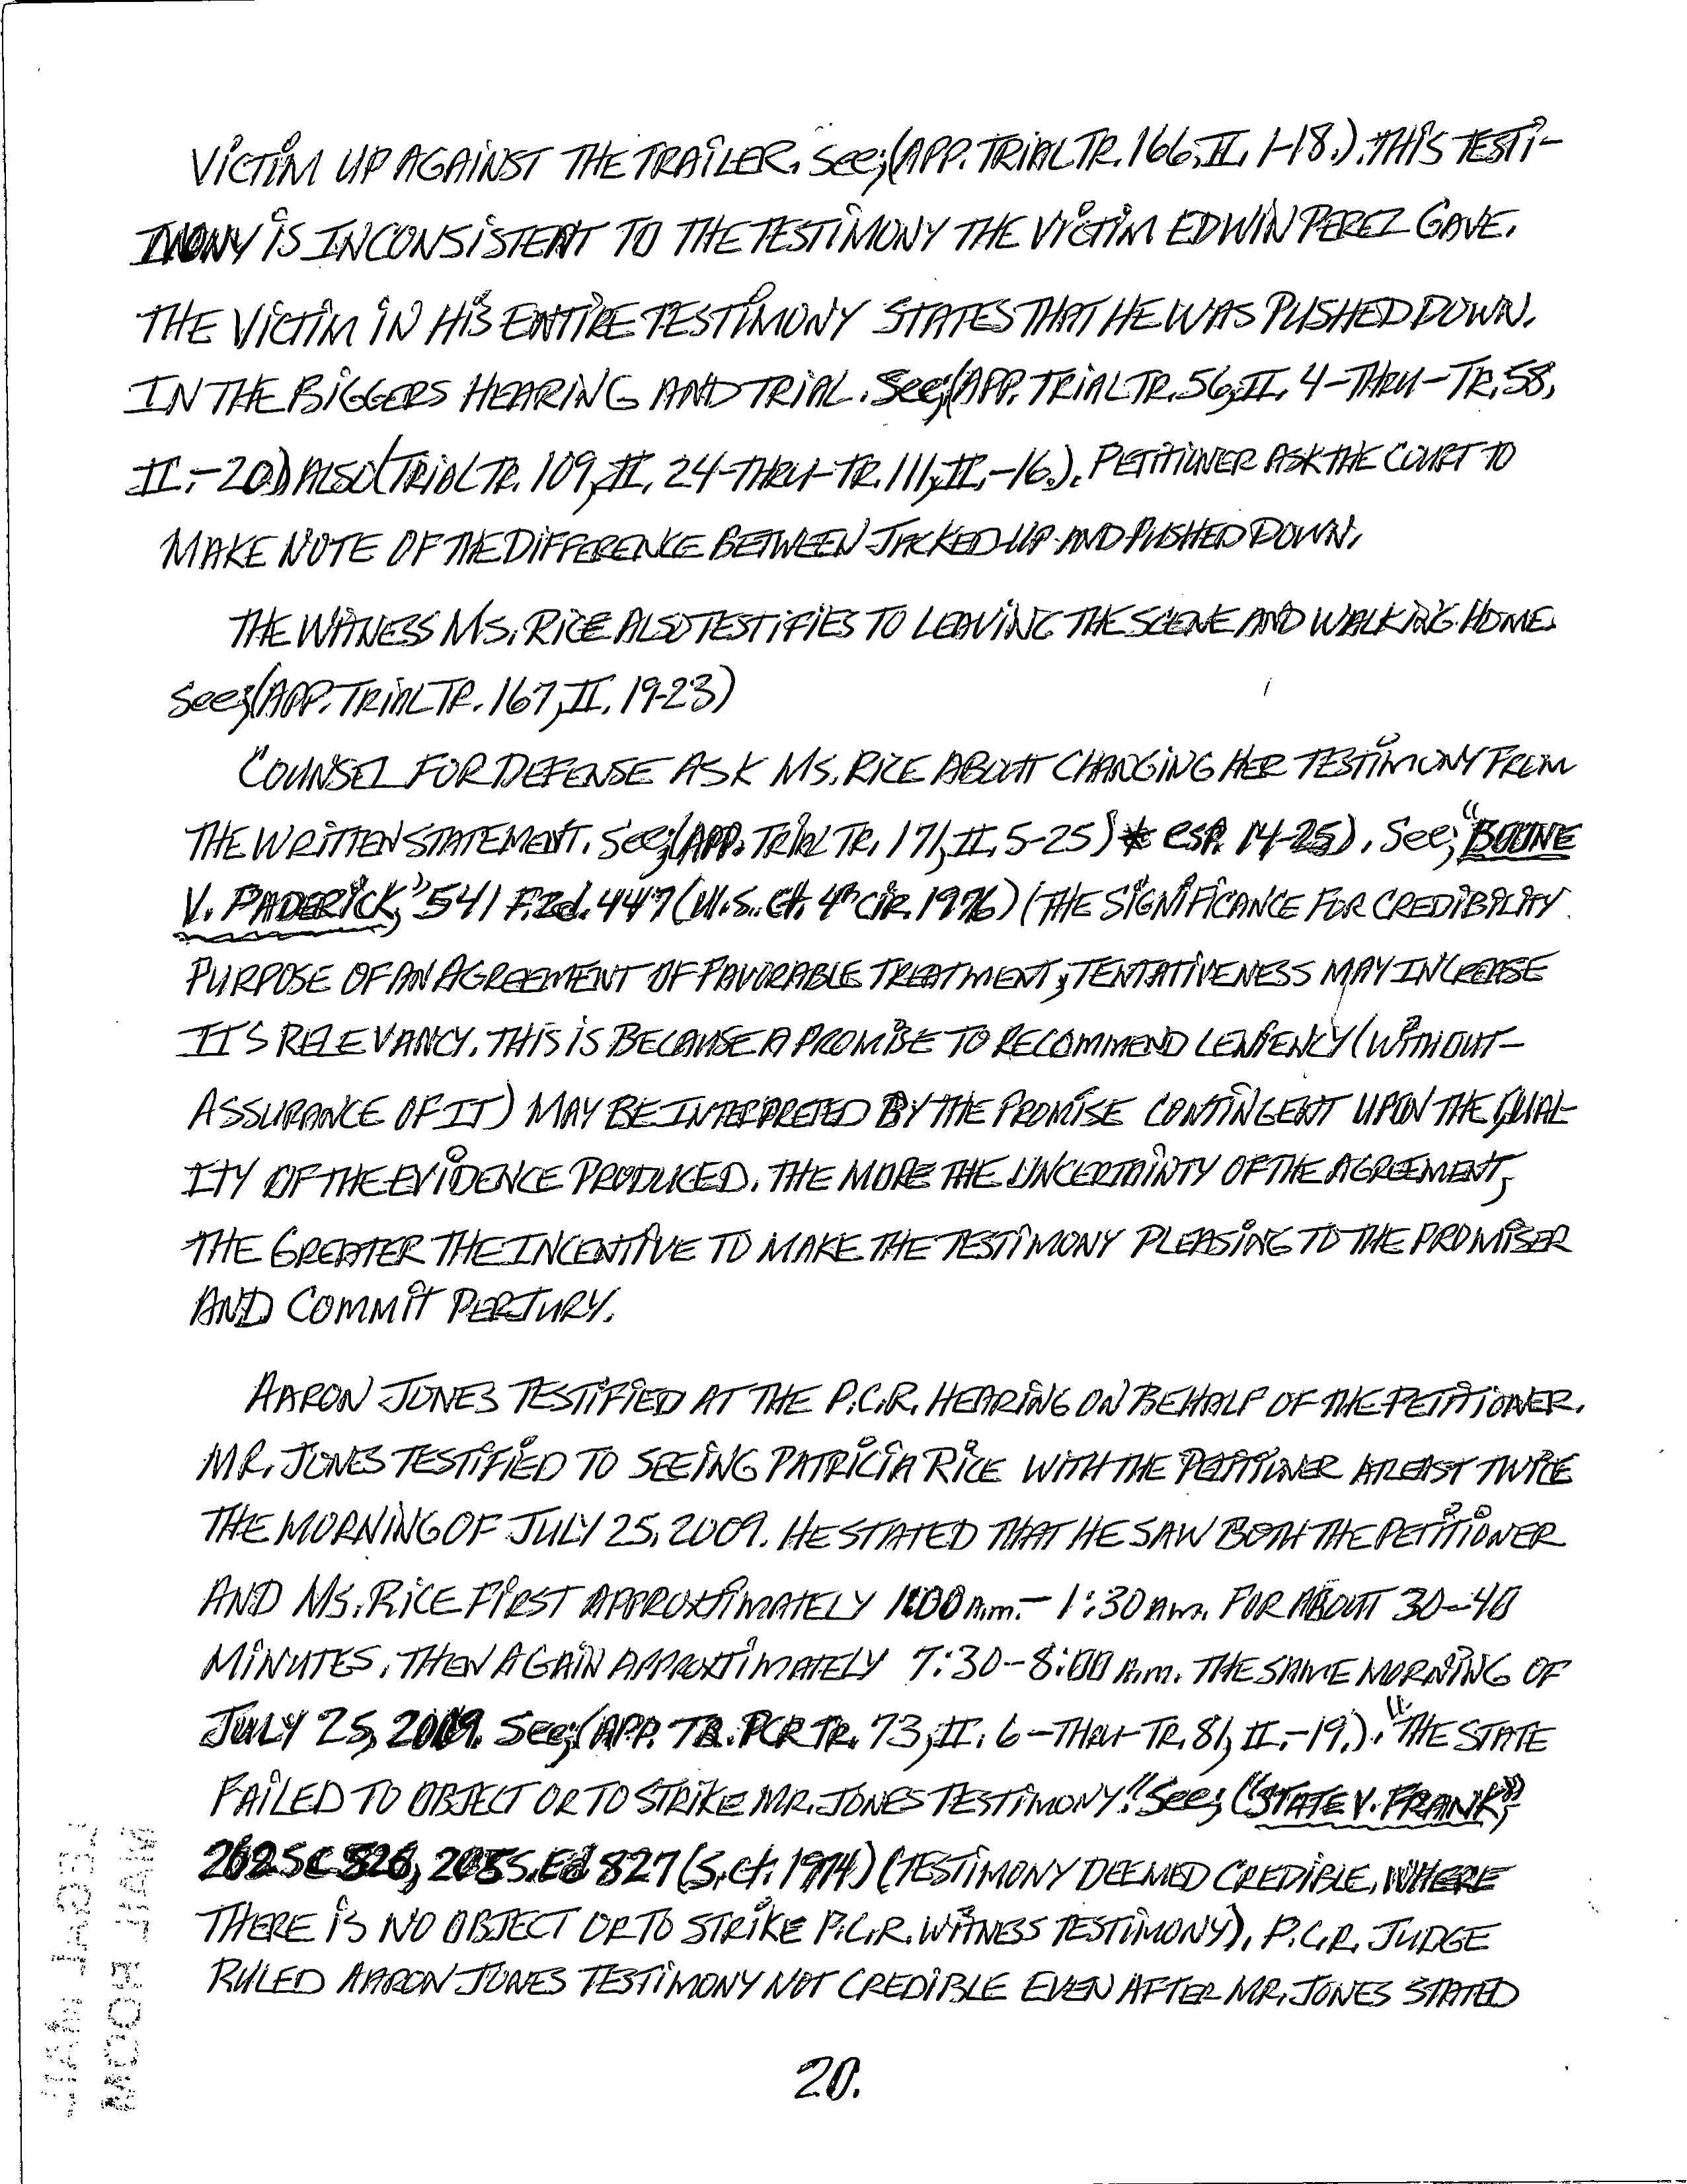 VICTIM UP AGAINST THE TRAILER. See;(APP. TRIAL TR. 166, II. 1-18.). THIS TESTI-
MONY IS INCONSISTENT TO THE TESTIMONY THE VICTIM EDWIN PEREZ GAVE.
THE VICTIM IN HIS ENTIRE TESTIMONY STATES THAT HE WAS PUSHED DOWN.
IN THE BIGGERS HEARING AND TRIAL. See;(APP. TRIAL TR. 56, II. 4-THRU-TR. 58,
II.-20.) ALSO (TRIAL TR. 109, II. 24-THRU-TR. 111, II.-16.). PETITIONER ASK THE COURT TO
MAKE NOTE OF THE DIFFERENCE BETWEEN JACKED-UP AND PUSHED DOWN.
THE WITNESS MS. RICE ALSO TESTIFIES TO LEAVING THE SCENE AND WALKING HOME.
See;(APP. TRIAL TR. 167, II. 19-23)
COUNSEL FOR DEFENSE ASK MS. RICE ABOUT CHANGING HER TESTIMONY FROM
THE WRITTEN STATEMENT. See;(APP. TRIAL TR. 171, II. 5-25) * esp. 14-25). See; "BOONE
V. PADERICK," 541 F.2d. 447 (U.S. Ct. 4th Cir. 1976) (THE SIGNIFICANCE FOR CREDIBILITY
PURPOSE OF AN AGREEMENT OF FAVORABLE TREATMENT, TENTATIVENESS MAY INCREASE
ITS RELEVANCY. THIS IS BECAUSE A PROMISE TO RECOMMEND LENIENCY (WITHOUT-
ASSURANCE OF IT) MAY BE INTERPRETED BY THE PROMISE CONTINGENT UPON THE QUAL-
ITY OF THE EVIDENCE PRODUCED. THE MORE THE UNCERTAINTY OF THE AGREEMENT,
THE GREATER THE INCENTIVE TO MAKE THE TESTIMONY PLEASING TO THE PROMISER
AND COMMIT PERJURY.
AARON JONES TESTIFIED AT THE P.C.R. HEARING ON BEHALF OF THE PETITIONER.
MR. JONES TESTIFIED TO SEEING PATRICIA RICE WITH THE PETITIONER AT LEAST TWICE
THE MORNING OF JULY 25, 2009. HE STATED THAT HE SAW BOTH THE PETITIONER
AND MS. RICE FIRST APPROXIMATELY 1:00 A.m.- 1:30 A.m. FOR ABOUT 30-40
MINUTES, THEN AGAIN APPROXTIMATELY 7:30-8:00 A.m. THE SAME MORNING OF
JULY 25, 2009. See;(APP. TR. PCR TR. 73, II. 6-THRU-TR. 81, II.-19.). "THE STATE
FAILED TO OBJECT OR TO STRIKE MR. JONES TESTIMONY." See; ("STATE V. FRANK";
262 SC 526, 205 S.Ed 827 (S.Ct. 1974) (TESTIMONY DEEMED CREDIBLE, WHERE
THERE IS NO OBJECT OR TO STRIKE P.C.R. WITNESS TESTIMONY), P.C.R. JUDGE
RULED AARON JONES TESTIMONY NOT CREDIBLE EVEN AFTER MR. JONES STATED
20.
LEGAL MAIL
MAIL ROOM